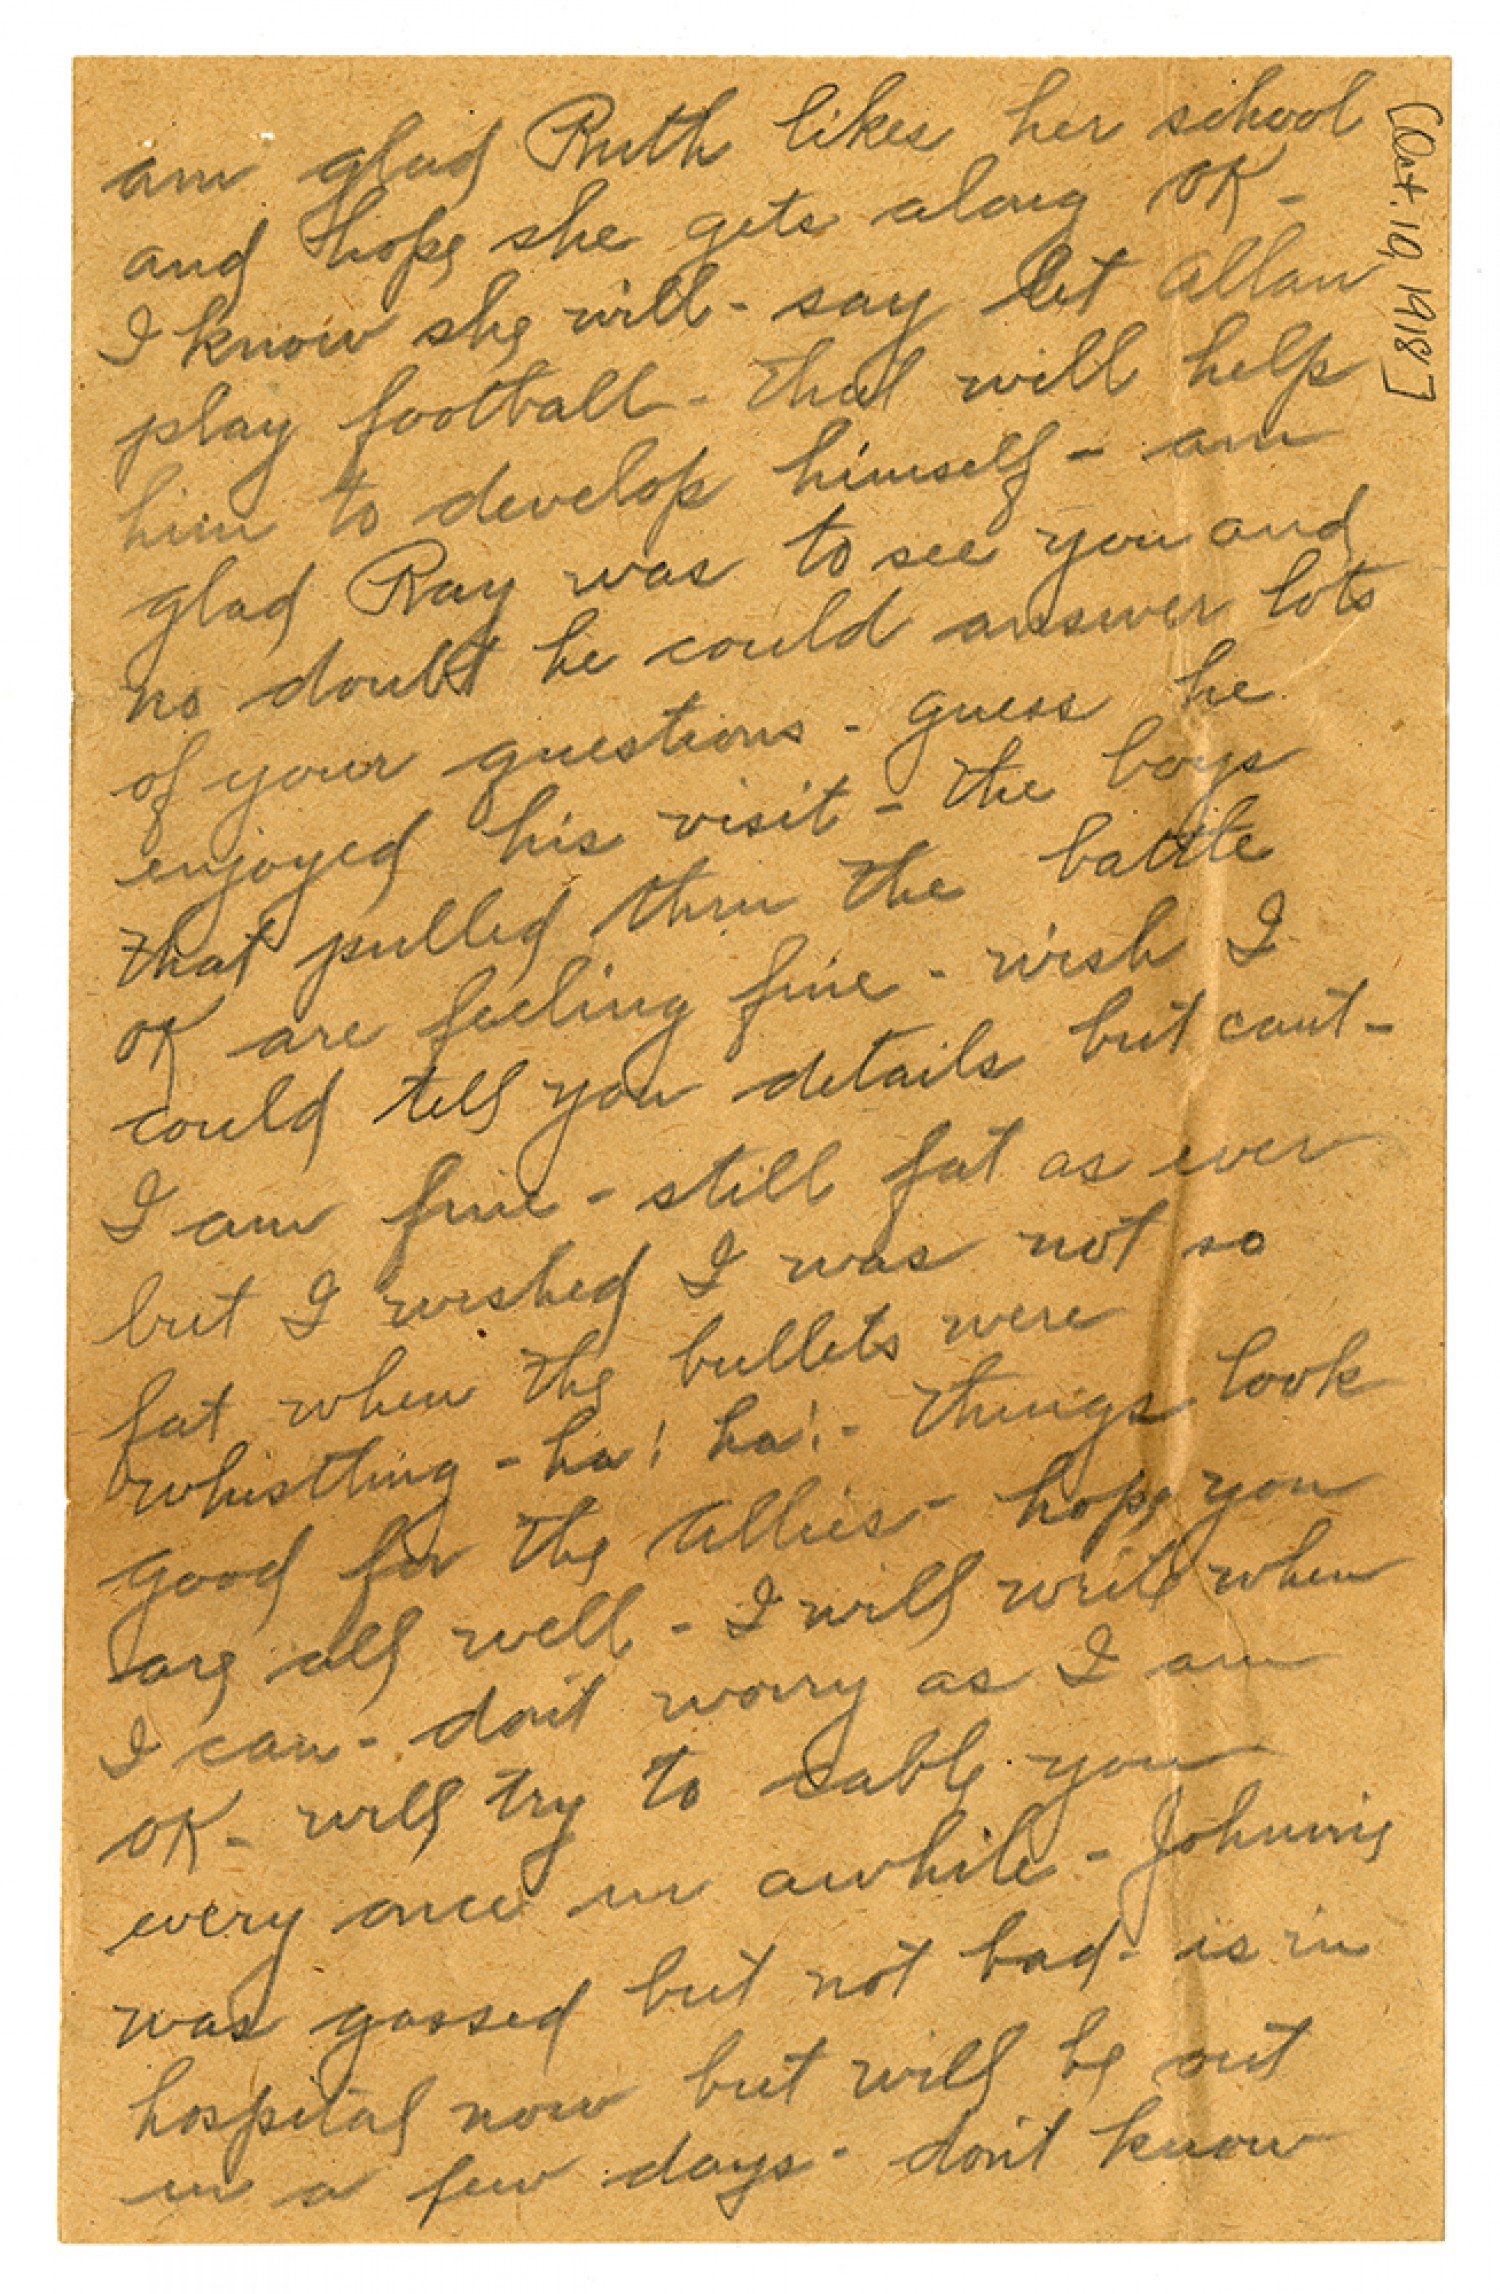 [Oct. 10, 1918]
am glad Ruth likes her school
and hope she gets along OK -
I know she will - say let Allan
play football - that will help
him to develop himself - am
glad Ray was to see you and
no doubt he could answer lots
of your questions - guess he
enjoyed his visit - the boys
that pulled thru the battle
OK are feeling fine - wish I
could tell you details but cant -
I am fine - still fat as ever
but I wished I was not so
fat when the bullets were
whistling - ha! ha! - things look
good for the Allies - hope you
are all well - I will write when
I can - don't worry as I am
OK - will try to cable you
every once in awhile - Johnnie
was gassed but not bad - is in
hospital now but will be out
in a few days - don't know